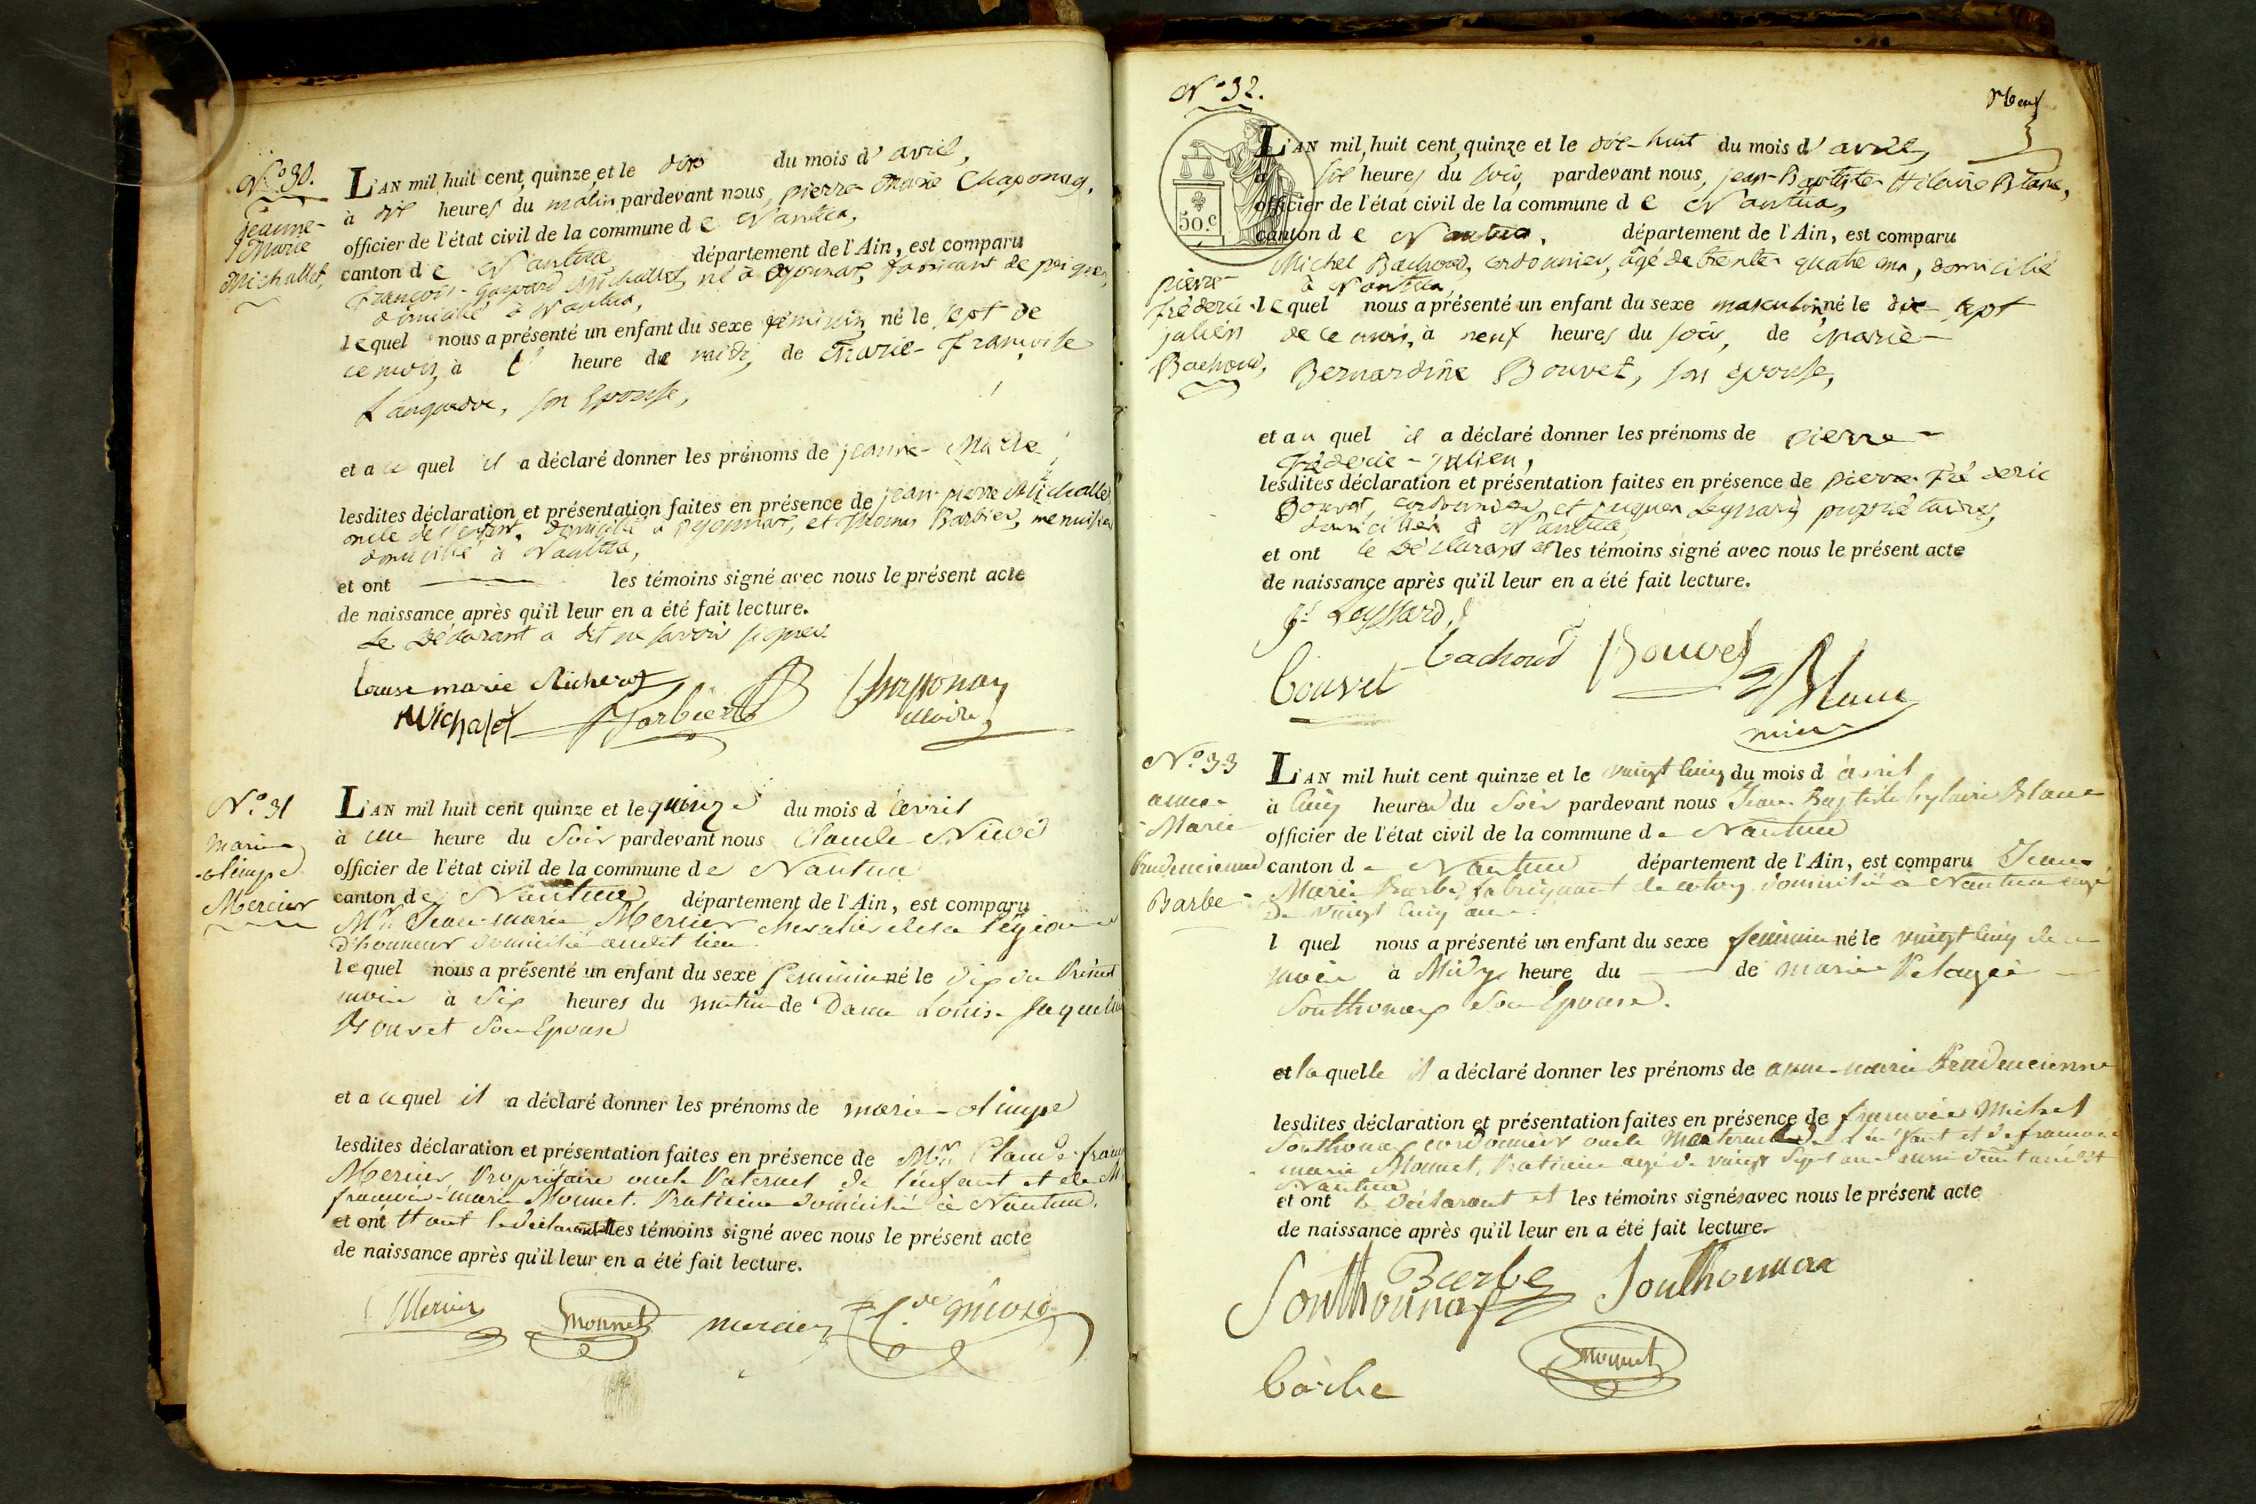 N.º 30.
Jeanne-
Marie
Michallet,
L'AN mil huit cent quinze et le dix du mois d'avril,
à dix heures du matin pardevant nous pierre Marie Chaponay,
officier de l'état civil de la commune de Nantua,
canton de Nantua département de l'Ain, est comparu
François-Gaspard Michallet, né à Oyonnax, fabricant de peignes,
domicilié à Nantua,
lequel nous a présenté un enfant du sexe féminin, né le sept de
ce mois, à heure de midi, de Marie-Françoise
son Epouse,
et a quel il a déclaré donner les prénoms de jeanne-Marie,
lesdites déclaration et présentation faites en présence de jean-pierre Michallet
oncle de l'enfant, domicilié à Oyonnax, et Thomas Barbier, menuisier
domicilié à Nantua,
et ont les témoins signé avec nous le présent acte
de naissance après qu'il leur en a été fait lecture.
Le Déclarant a dit ne savoir signer.
Louise marie
Michalet Barbier Chapponay
Maire
N.º 31
Marie
-olimpe
Mercier
L'AN mil huit cent quinze et le quinze du mois d'avril
à une heure du Soir pardevant nous Claude
officier de l'état civil de la commune de Nantua
canton de Nantua département de l'Ain, est comparu
Mr Jean-marie Mercier chevalier de la légion
d'honneur domicilié audit lieu
lequel nous a présenté un enfant du sexe feminin né le dix du Présent
mois à Six heures du matin de Dame Louise
Bouvet Son Epouse
et a quel il a déclaré donner les prénoms de marie-olimpe
lesdites déclaration et présentation faites en présence de Mr Claude
Mercier Propriétaire oncle Paternel de l'enfant et de
françois-marie Monnet Praticien domicilié à Nantua.
et ont le déclarant les témoins signé avec nous le présent acte
de naissance après qu'il leur en a été fait lecture.
Mercier Monnet mercier
N.º 32.
50.c
pierre-
fréderic
julien
Bachoud,
L'AN mil huit cent quinze et le dix-huit du mois d'avril,
à six heures du soir, pardevant nous, jean-Baptiste-Hilaire Blanc,
officier de l'état civil de la commune de Nantua,
canton de Nantua, département de l'Ain, est comparu
Michel Bachoud, cordonnier, âgé de trente quatre ans, domicilié
à Nantua,
lequel nous a présenté un enfant du sexe masculin, né le dix-sept
de ce mois, à neuf heures du soir, de Marie-
Bernardine Bouvet, son épouse,
et au quel il a déclaré donner les prénoms de pierre-
fréderic-julien,
lesdites déclaration et présentation faites en présence de pierre Fréderic
Bouvet, cordonnier et jacques Leyssard propriétaires,
domiciliés à Nantua,
et ont le Déclarant et les témoins signé avec nous le présent acte
de naissance après qu'il leur en a été fait lecture.
Leyssard
Bouvet bachoud Bouvet Blanc
N.º 33
anne-
Marie
Prudencienne
Barbe
L'AN mil huit cent quinze et le vingt cinq du mois d'avril
à cinq heures du Soir pardevant nous Jean Baptiste hylaire Blanc
officier de l'état civil de la commune de Nantua
canton de Nantua département de l'Ain, est comparu Jean
Marie Barbe, fabriquant de domicilié à Nantua agé
de vingt cinq ans
l quel nous a présenté un enfant du sexe feminin né le vingt cinq de ce
mois à Midy heure du de marie Pelagie
Southonax Son Epouse.
et la quelle il a déclaré donner les prénoms de anne-marie Prudencienne
lesdites déclaration et présentation faites en présence de françois Michel
Southonax cordonnier oncle Maternel de l'enfant et de françois
marie Monnet, Praticien agé de vingt Sept ans
Nantua
et ont le déclarant et les témoins signés avec nous le présent acte
de naissance après qu'il leur en a été fait lecture.
Barbe Southonnax
Southonnax
Monnet
barbe